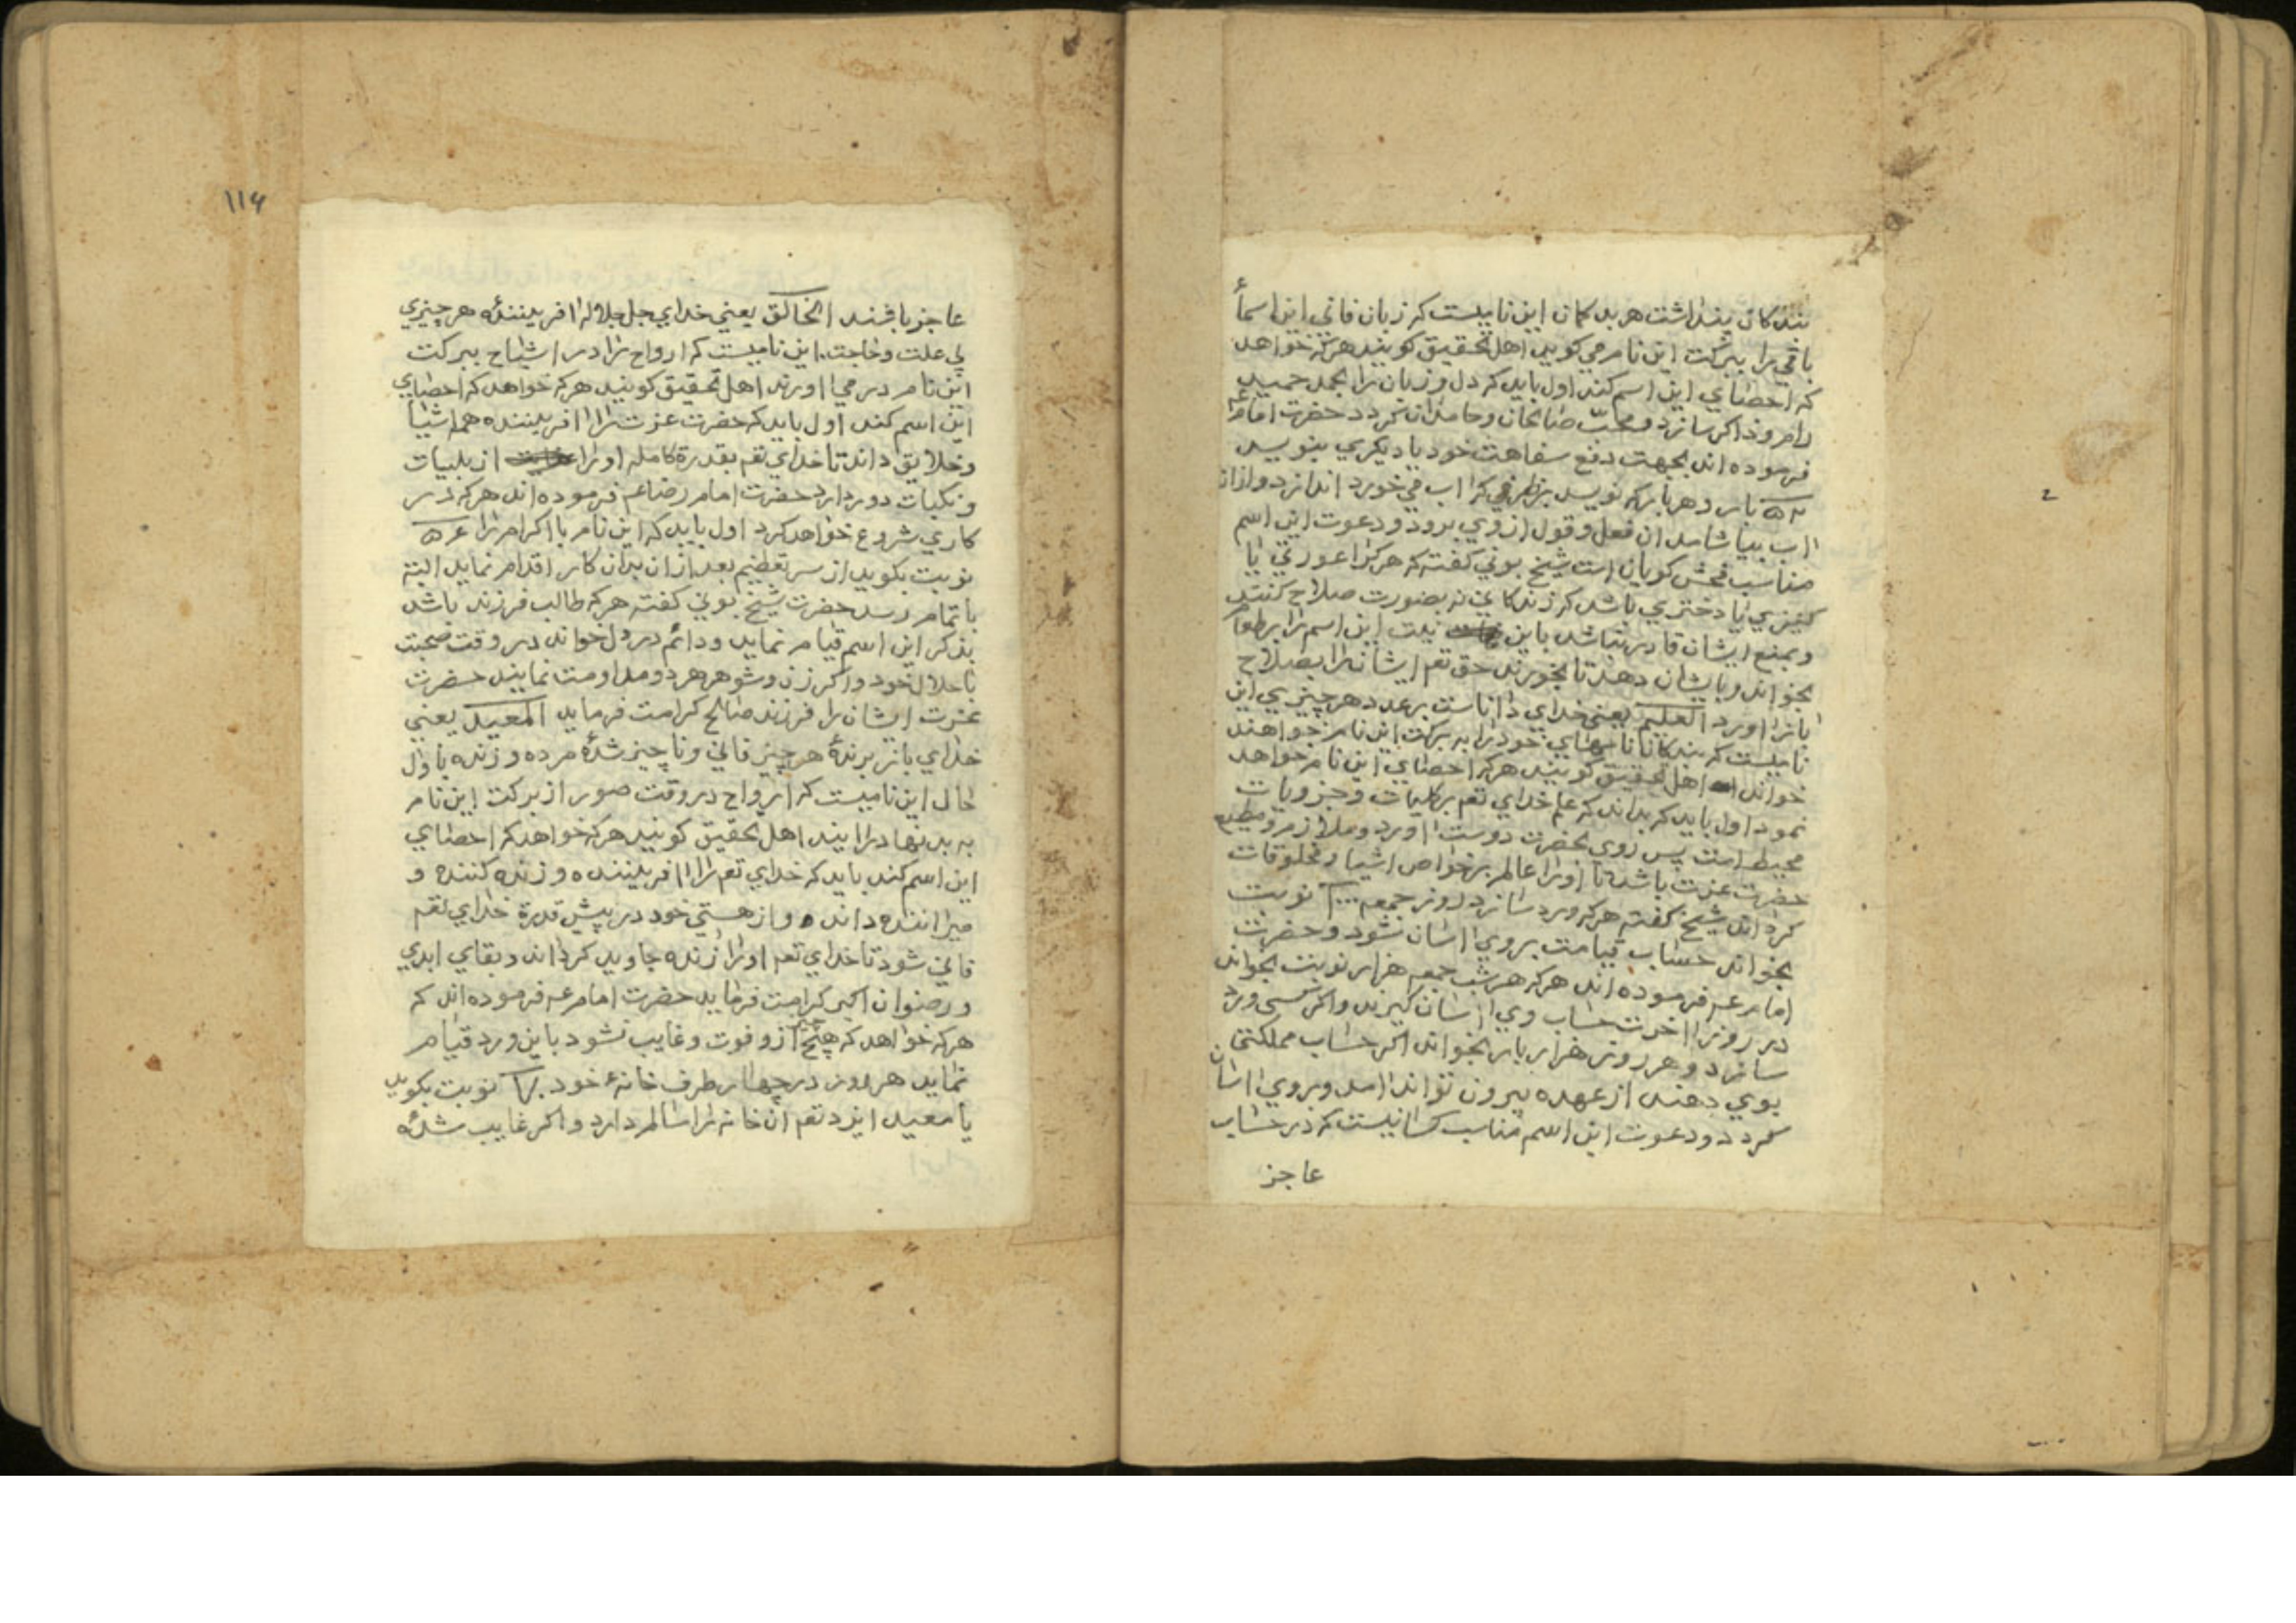 بندکان پنداشت هر بد کمان این نامیست که زبان فانی این اسمأ
باقی را ببرکت این نام می کویید اهل تحقیق کویند هرکه خواهد
که احصای این اسم کند اول باید که دل و زبان را بحمد حمید
رام و ذاکر سازد و محبّ صالحان و حامدان کردد حضرت امام عم
فرموده اند بجهت دفع سفاهت خود یا دیکری بنویسد
بار و هر بار که نویسد بر ظرفی که اب می خورد اندازد و از ان
اب بیاشامد ان فعل و قول از وی برود و دعوت این اسم
مناسب فحش کویان است شیخ بونی کفته که هرکرا عورتی یا
کنیزی یا دختری باشد که زندکانی نه بصورت صلاح کنند
و بمنع ایشان قادر نباشد باین نیت این اسم را بر طعام
بخواند و بایشان دهد تا بخورند حق تعم ایشانرا بصلاح
باز اورد العلیم یعنی خدای داناست بر عدد هر چیزیی این
نامیست که بندکان نامهای خود را به برکت این نام خواهند
خواند اهل تحقیق کویند هرکه احصای این نام خواهد
نمود اول باید که بداند که علم خدای تعم بر کلیات و جزویات
محیط است پس روی بحضرت دوست اورد و ملازم و مطیع
حضرت عزت باشد تا اورا عالم بر خواص اشیا و مخلوقات
کرداند شیخ کفته هرکه ورد سازد روز جمعه نوبت
بخواند حساب قیامت بر وی اسان شود و حضرت
امام عم فرموده اند هرکه هر شب جمعه هزار نوبت بخواند
در روز اخرت حساب وی اسان کیرند و اکر کسی ورد
سازد و هر روز هزار بار بخواند اکر حساب مملکتی
بوی دهند از عهده بیرون تواند امد و بر وی اسان
کردد و دعوت این اسم مناسب کسانیست که در حساب
عاجز
۱۱۶
عاجز باشند الخالق یعنی خدای جل جلاله افریننده هر چیزی
بی علت و حاجت این نامیست که ارواح را در اشباح ببرکت
این نام در می اورند اهل تحقیق کویند هرکه خواهد که احصای
این اسم کند اول باید که حضرت عزت را افریننده همه اشیا
و خلایق داند تا خدای تعم بقدرة کامله اورا از بلیات
و نکبات دور دارد حضرت امام رضا عم فرموده اند هرکه در
کاری شروع خواهد کرد اول باید که این نام با اکرام را
نوبت بکوید از سر تعظیم بعد از ان بدان کار اقدام نماید البته
باتمام رسد حضرت شیخ بونی کفته هرکه طالب فرزند باشد
بذکر این اسم قیام نماید و دائم در دل خواند در وقت صحبت
با حلال خود و اکر زن و شوهر هر دو مداومت نمایند حضرت
عزت ایشان را فرزند صالح کرامت فرماید المعید یعنی
خدای باز برندهٔ هر چیز فانی و ناچیز شدهٔ مرده و زنده باول
حال این نامیست که ارواح در وقت صور از برکت این نام
به بدنها درایند اهل تحقیق کویند هرکه خواهد که احصای
این اسم کند باید که خدای تعم را افریننده و زنده کننده و
میراننده داند و از هستی خود در پیش قدرة خدای تعم
فانی شود تا خدای تعم اورا زنده جاوید کرداند و بقای ابدی
و رضوان اکبر کرامت فرماید حضرت امام عم فرموده اند که
هرکه خواهد که هیچ چیز ازو فوت و غایب نشود باین ورد قیام
نماید هر روز در چهار طرف خانهٔ خود نوبت بکوید
یا معید ایزد تعم ان خانه را سالم دارد و اکر غایب شدهٔ